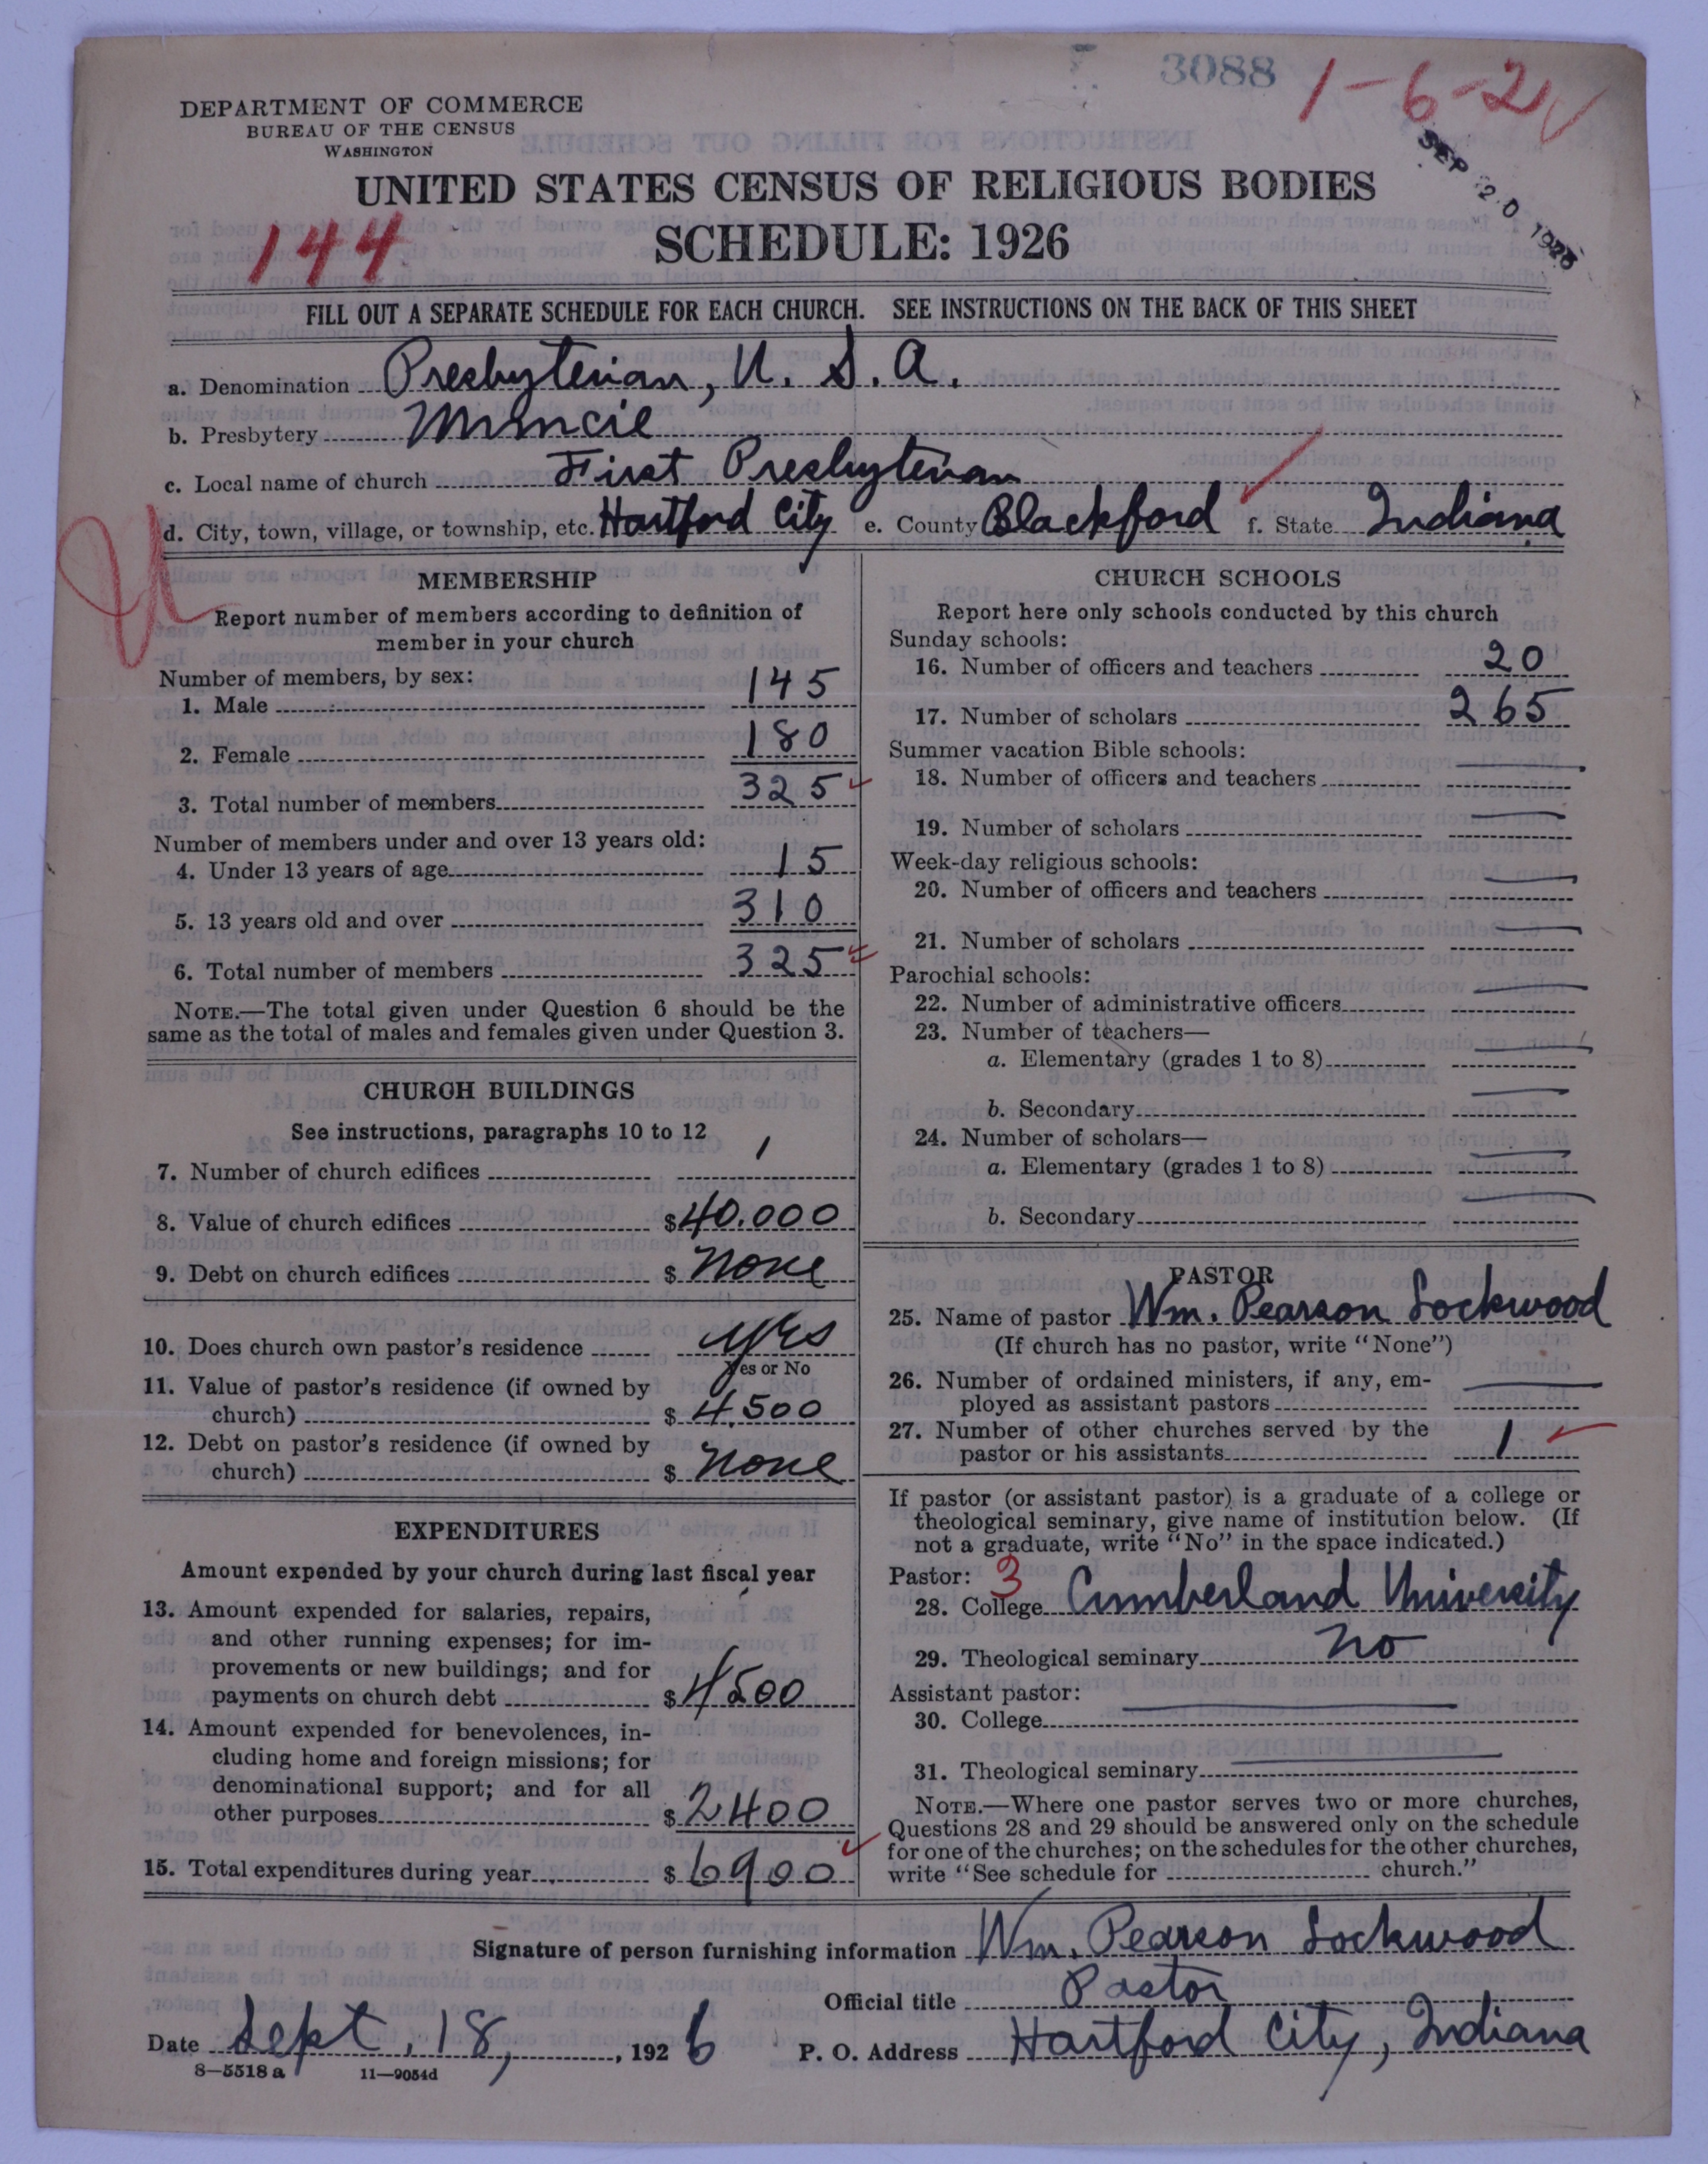 3088
1-6-21
DEPARTMENT OF COMMERCE
BUREAU OF THE CENSUS
WASHINGTON
SEP 20 1926
UNITED STATES CENSUS OF RELIGIOUS BODIES
144
SCHEDULE: 1926
FILL OUT A SEPARATE SCHEDULE FOR EACH CHURCH. SEE INSTRUCTIONS ON THE BACK OF THIS SHEET
a. Denomination Presbyterian, U. S. A.
b. Presbytery Muncie
c. Local name of church First Presbyterian
d. City, town, village, or township, etc. Hartford City e. County Blackford f. State Indiana
MEMBERSHIP
Report number of members according to definition of
member in your church
Number of members, by sex:
1. Male 145
2. Female 180
3. Total number of members 325
Number of members under and over 13 years old:
4. Under 13 years of age 15
5. 13 years old and over 310
6. Total number of members 325
NOTE.—The total given under Question 6 should be the
same as the total of males and females given under Question 3.
CHURCH BUILDINGS
See instructions, paragraphs 10 to 12
7. Number of church edifices 1
8. Value of church edifices $ 40.000
9. Debt on church edifices $ None
10. Does church own pastor's residence yes
Yes or No
11. Value of pastor's residence (if owned by
church) $ 4.500
12. Debt on pastor's residence (if owned by
church) $ None
EXPENDITURES
Amount expended by your church during last fiscal year
13. Amount expended for salaries, repairs,
and other running expenses; for im-
provements or new buildings; and for
payments on church debt $ 4500
14. Amount expended for benevolences, in-
cluding home and foreign missions; for
denominational support; and for all
other purposes $ 2400
15. Total expenditures during year $ 6900
CHURCH SCHOOLS
Report here only schools conducted by this church
Sunday schools:
16. Number of officers and teachers 20
17. Number of scholars 265
Summer vacation Bible schools:
18. Number of officers and teachers —
19. Number of scholars —
Week-day religious schools:
20. Number of officers and teachers —
21. Number of scholars —
Parochial schools:
22. Number of administrative officers —
23. Number of teachers—
a. Elementary (grades 1 to 8) —
b. Secondary —
24. Number of scholars—
a. Elementary (grades 1 to 8) —
b. Secondary —
PASTOR
25. Name of pastor Wm. Pearson Lockwood
(If church has no pastor, write "None")
26. Number of ordained ministers, if any, em-
ployed as assistant pastors —
27. Number of other churches served by the
pastor or his assistants 1
If pastor (or assistant pastor) is a graduate of a college or
theological seminary, give name of institution below. (If
not a graduate, write "No" in the space indicated.)
Pastor: 3
28. College Cumberland University
29. Theological seminary No
Assistant pastor:
30. College —
31. Theological seminary —
NOTE.—Where one pastor serves two or more churches,
Questions 28 and 29 should be answered only on the schedule
for one of the churches; on the schedules for the other churches,
write "See schedule for church."
Signature of person furnishing information Wm. Pearson Lockwood
Official title Pastor
Date Sept. 18, , 1926 P. O. Address Hartford City, Indiana
8—5518 a 11—9054d